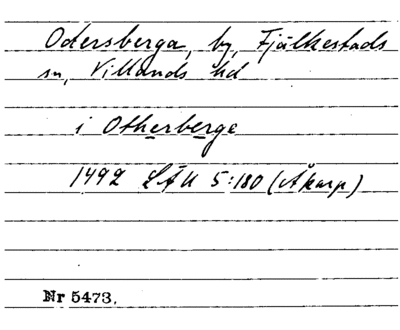 Odersberga, by, Fjälkestads
sn, Villands hd
i Otherberge
1492 LÄU 5:180 (Åkarp)
Nr 5473.